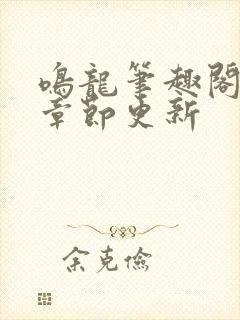 鳴龍筆趣閣
章節更新
余克儉